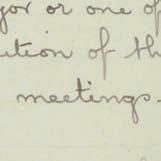 yor or one of
ution of th
meetings.